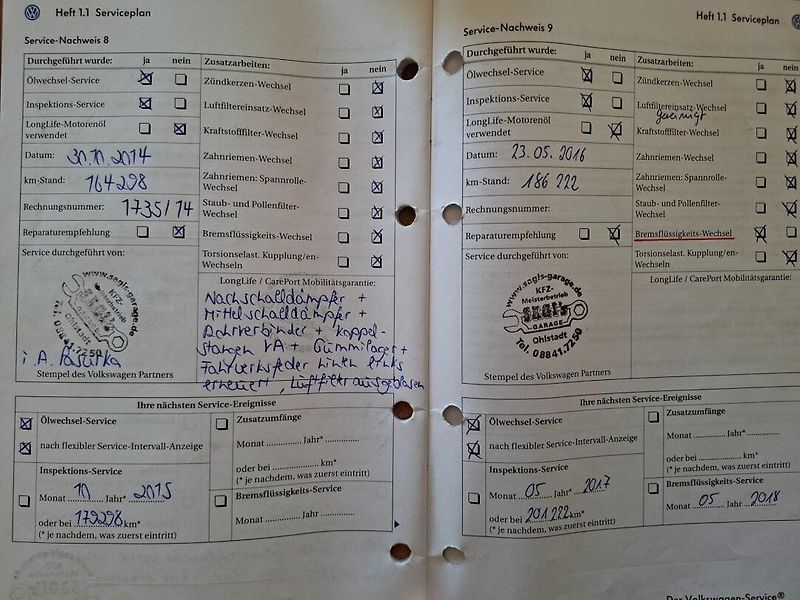 Heft 1.1 Serviceplan
Service-Nachweis 8
Durchgeführt wurde: ja nein
Ölwechsel-Service
Inspektions-Service
LongLife-Motorenöl
verwendet
Datum: 30.10.2014
km-Stand: 164298
Rechnungsnummer: 1735/14
Reparaturempfehlung
Service durchgeführt von:
www.sagis-garage.de
KFZ-
Meisterbetrieb
Ohlstadt
Tel. 08841.7250
i A.
Stempel des Volkswagen Partners
Zusatzarbeiten: ja nein
Zündkerzen-Wechsel
Luftfiltereinsatz-Wechsel
Kraftstofffilter-Wechsel
Zahnriemen-Wechsel
Zahnriemen: Spannrolle-
Wechsel
Staub- und Pollenfilter-
Wechsel
Bremsflüssigkeits-Wechsel
Torsionselast. Kupplung/en-
Wechseln
LongLife / CarePort Mobilitätsgarantie:
Nachschalldämpfer +
Mittelschalldämpfer +
Rohrverbinder + Koppel-
stangen VA + Gummilager +
Fahrwerksfeder hinten links
erneuert, Luftfilter ausgeblasen
Ihre nächsten Service-Ereignisse
Ölwechsel-Service
nach flexibler Service-Intervall-Anzeige
Inspektions-Service
Monat 10 Jahr* 2015
oder bei 179298 km*
(* je nachdem, was zuerst eintritt)
Zusatzumfänge
Monat .............. Jahr* ..............
oder bei .............. km*
(* je nachdem, was zuerst eintritt)
Bremsflüssigkeits-Service
Monat .............. Jahr ..............
Heft 1.1 Serviceplan
Service-Nachweis 9
Durchgeführt wurde: ja nein
Ölwechsel-Service
Inspektions-Service
LongLife-Motorenöl
verwendet
Datum: 23.05.2016
km-Stand: 186 222
Rechnungsnummer:
Reparaturempfehlung
Service durchgeführt von:
www.sagis-garage.de
KFZ-
Meisterbetrieb
SAGI'S
GARAGE
Ohlstadt
Tel. 08841.7250
Stempel des Volkswagen Partners
Zusatzarbeiten: ja nein
Zündkerzen-Wechsel
Luftfiltereinsatz-Wechsel
gereinigt
Kraftstofffilter-Wechsel
Zahnriemen-Wechsel
Zahnriemen: Spannrolle-
Wechsel
Staub- und Pollenfilter-
Wechsel
Bremsflüssigkeits-Wechsel
Torsionselast. Kupplung/en-
Wechseln
LongLife / CarePort Mobilitätsgarantie:
Ihre nächsten Service-Ereignisse
Ölwechsel-Service
nach flexibler Service-Intervall-Anzeige
Inspektions-Service
Monat 05 Jahr* 2017
oder bei 201 222 km*
(* je nachdem, was zuerst eintritt)
Zusatzumfänge
Monat .............. Jahr* ..............
oder bei .............. km*
(* je nachdem, was zuerst eintritt)
Bremsflüssigkeits-Service
Monat 05 Jahr 2018
Der Volkswagen-Service®